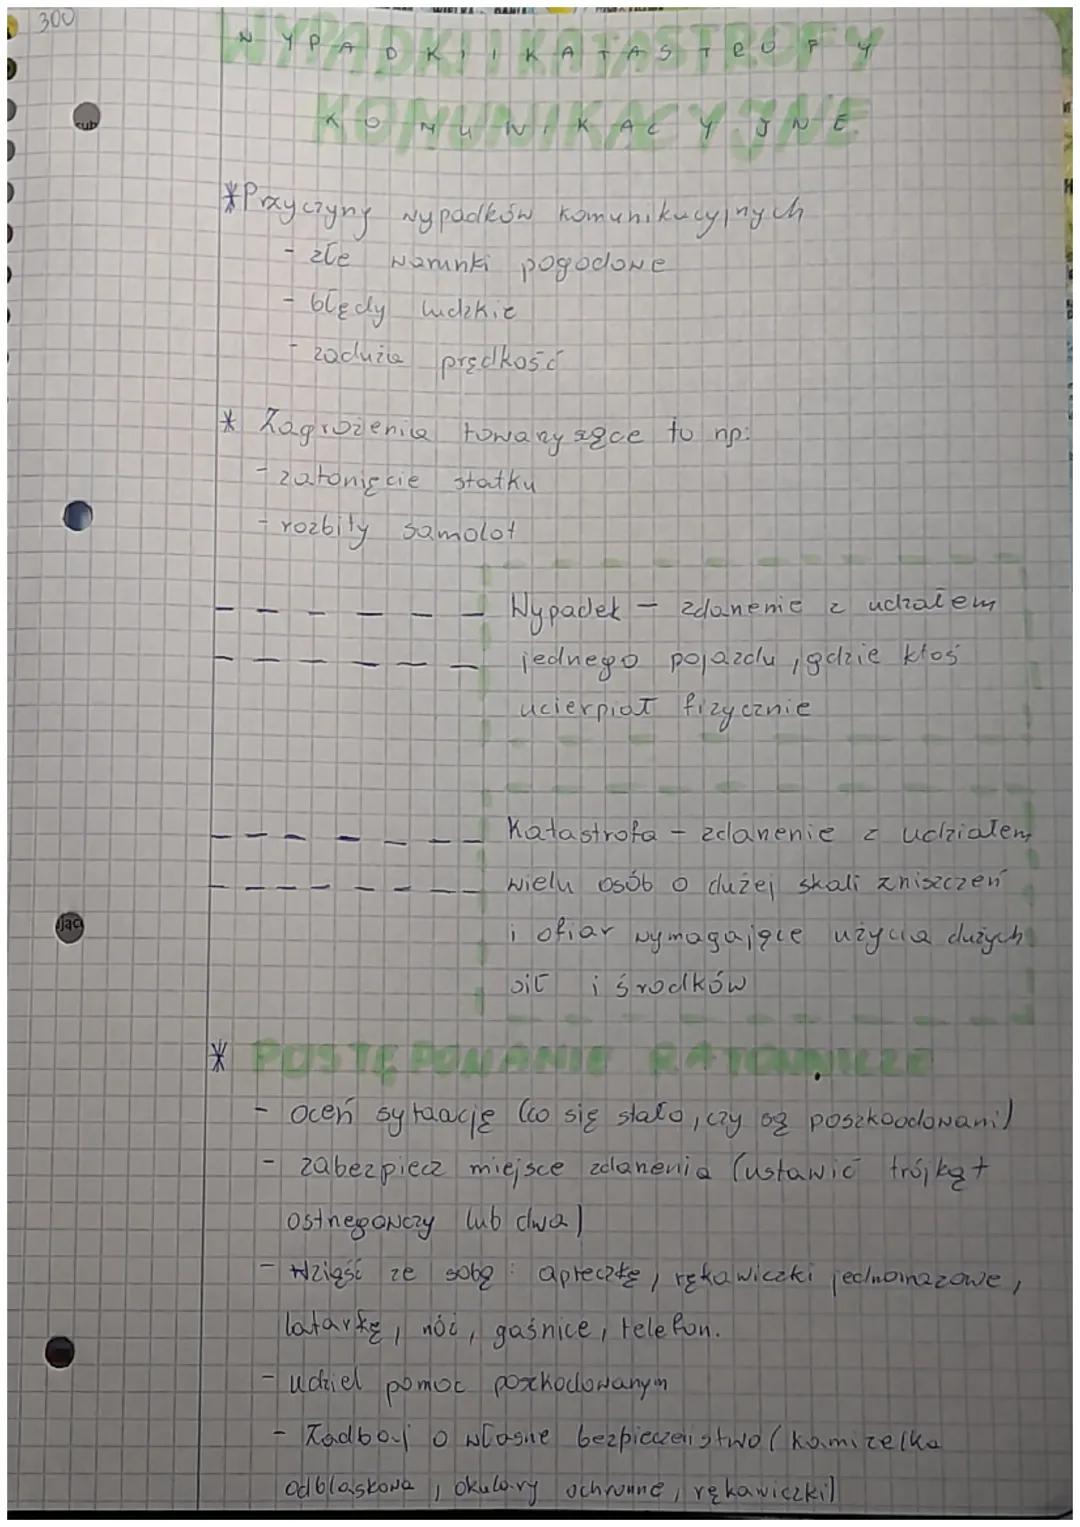 300
WYPADKI I KATASTROFY
KOMUNIKACYJNE
*Przyczyny wypadków komunikacyjnych
- złe warunki pogodowe
- błędy ludzkie
- zaduża prędkość
* Zagrożenia towarzyszące to np:
- zatonięcie statku
- rozbity samolot
Wypadek - zdarzenie z udziałem
jednego pojazdu, gdzie ktoś
ucierpiał fizycznie
Katastrofa - zdarzenie z udziałem
wielu osób o dużej skali zniszczeń
i ofiar wymagające użycia dużych
sił i środków
* POSTĘPOWANIE RATOWNICZE
- oceń sytaację (co się stało, czy są poszkoodowani)
- zabezpiecz miejsce zdarzenia (ustawić trójkąt
ostrzegawczy lub dwa)
- Wziąść ze sobą: apteczkę, rękawiczki jednorazowe,
latarkę, nóż, gaśnice, telefon.
- udziel pomoc poszkodowanym
- Zadbaj o własne bezpieczeństwo (kamizelka
odblaskowa, okulary ochronne, rękawiczki)